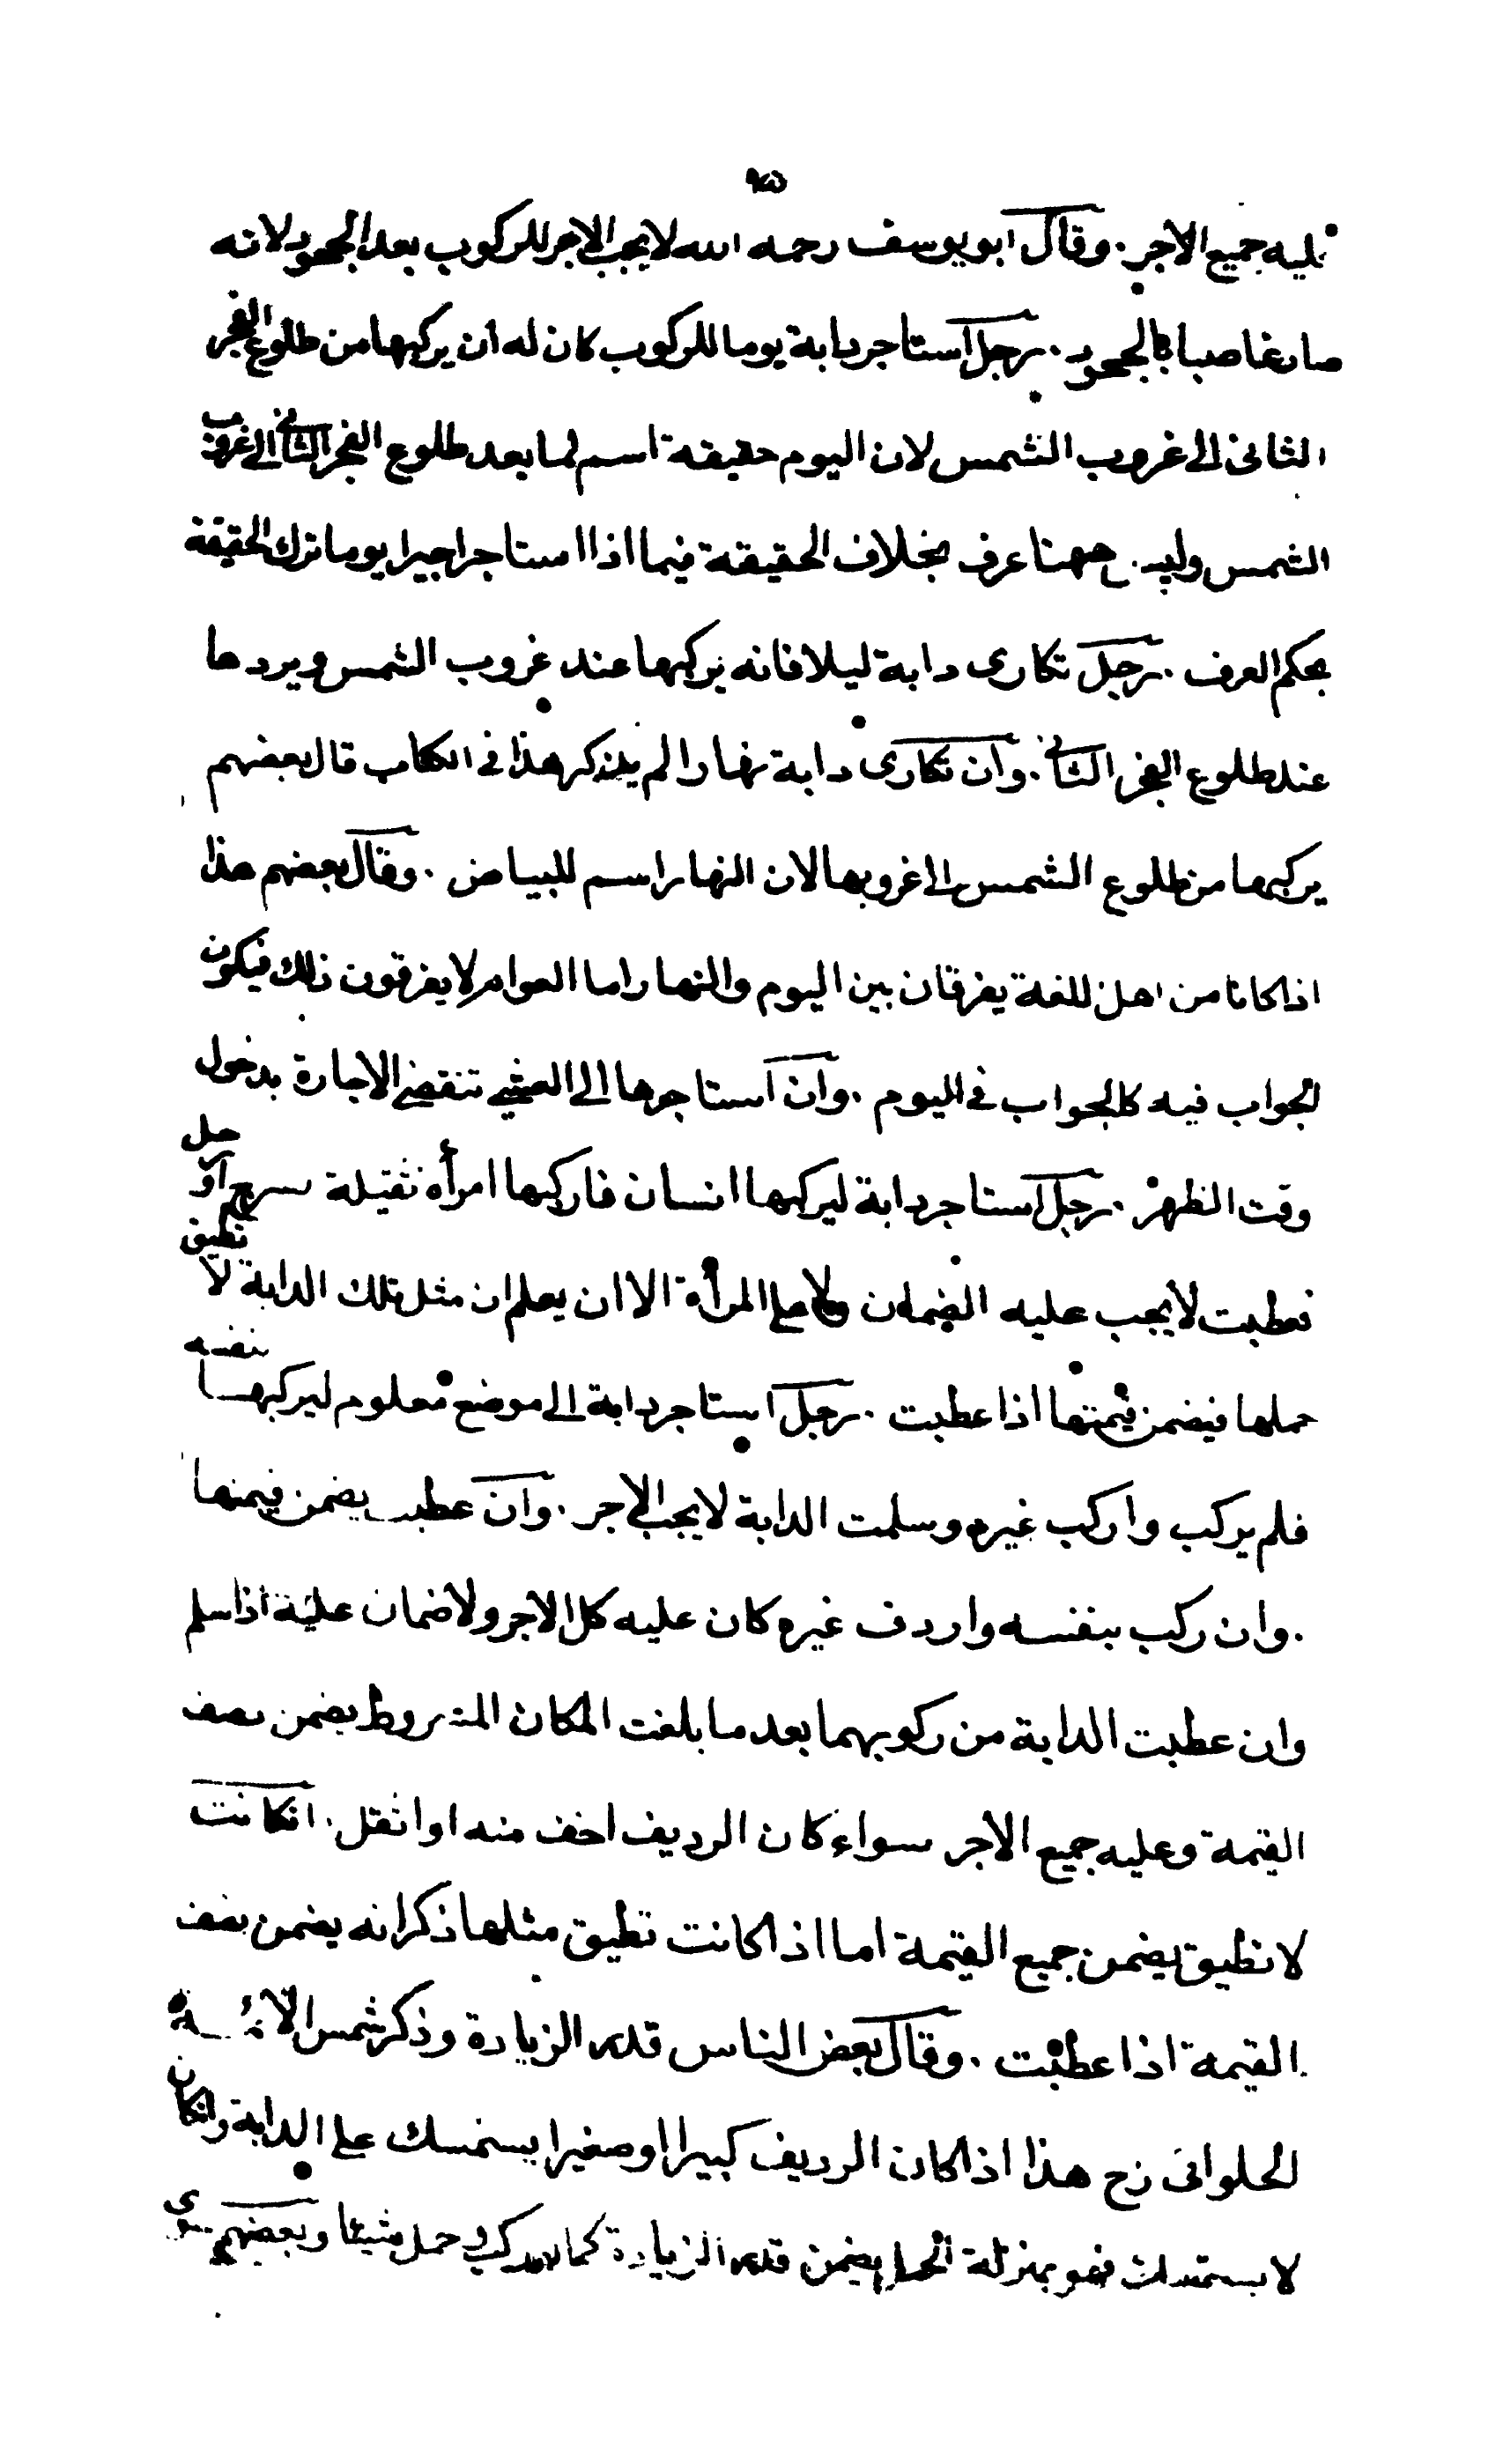 عليه جميع الاجر . وقال ابو يوسف رحمه الله لا يجب الاجر للركوب بعد الجحود لانه
صار غاصبا بالجحود . رجل استاجر دابة يوما للركوب كان له ان يركبها من طلوع الفجر
الثانى الى غروب الشمس لان اليوم حقيقة اسم لما بعد طلوع الفجر الثانى الى غروب
الشمس وليس ههنا عرف بخلاف الحقيقة فيما اذا استاجر اجيرا يوما ترك الحقيقة
بحكم العرف . رجل تكارى دابة ليلا فانه يركبها عند غروب الشمس ويردها
عند طلوع الفجر الثانى . وان تكارى دابة نهارا لم يذكر هذا فى الكتاب قال بعضهم
يركبها من طلوع الشمس الى غروبها لان النهار اسم للبياض . وقال بعضهم هذا
اذا كانا من اهل اللغة يفرقان بين اليوم والنهار اما العوام لا يفرقون ذلك فيكون
الجواب فيه كالجواب فى اليوم . وان استاجرها الى العشى تنقضى الاجارة بدخول
وقت الظهر . رجل استاجر دابة ليركبها انسان فاركبها امرأة ثقيلة بسرج او رحل
فعطبت لا يجب عليه الضمان ولا على المرأة الا ان يعلم ان مثل تلك الدابة لا تطيق
حملها فيضمن قيمتها اذا عطبت . رجل استاجر دابة الى موضع معلوم ليركبها بنفسه
فلم يركب واركب غيره وسلمت الدابة لا يجب الاجر . وان عطبت يضمن قيمتها
. وان ركب بنفسه واردف غيره كان عليه كل الاجر ولا ضمان عليه اذا سلم
وان عطبت الدابة من ركوبهما بعد ما بلغت المكان المشروط يضمن نصف
القيمة وعليه جميع الاجر سواء كان الرديف اخف منه او اثقل . ان كانت
لا تطيق يضمن جميع القيمة اما اذا كانت تطيق مثلها ذكر انه يضمن نصف
القيمة اذا عطبت . وقال بعض الناس قدر الزيادة وذكر شمس الائمة
الحلوانى رح هذا اذا كان الرديف كبيرا او صغيرا يستمسك على الدابة وان كان
لا يستمسك فهو بمنزلة الحمل يضمن قدر الزيادة كما لو ركب وحمل شيئا وبعضهم